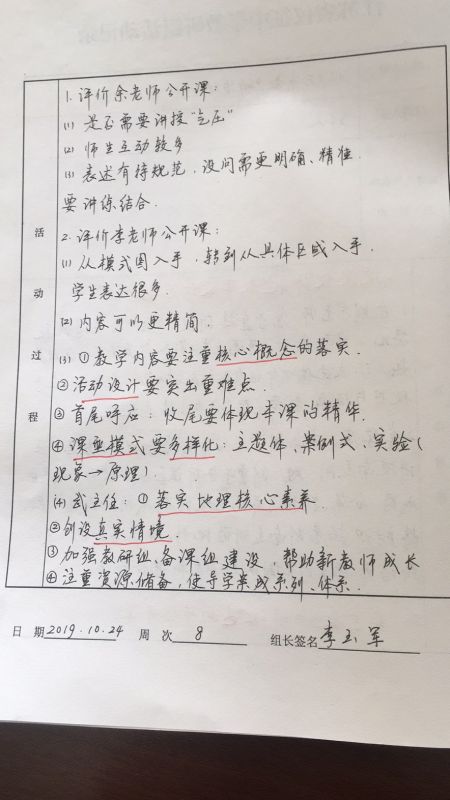 1. 评价余老师公开课:
(1) 是否需要讲授"气压"
(2) 师生互动较多
(3) 表述有待规范，设问需更明确、精准.
要讲练结合.
2. 评价李老师公开课:
(1) 从模式图入手，转到从具体区域入手.
学生表达很多.
(2) 内容可以更精简.
(3) ① 教学内容要注重核心概念的落实.
② 活动设计要突出重难点.
③ 首尾呼应: 收尾要体现本课的精华.
④ 课堂模式要多样化: 主题体、案例式、实验(
现象→原理)
(4) 武主任: ① 落实地理核心素养.
② 创设真实情境.
③ 加强教研组、备课组建设，帮助新教师成长
④ 注重资源储备，使导学案成系列、体系.
活动过程
日 期 2019.10.24 周 次 8 组长签名 李玉军